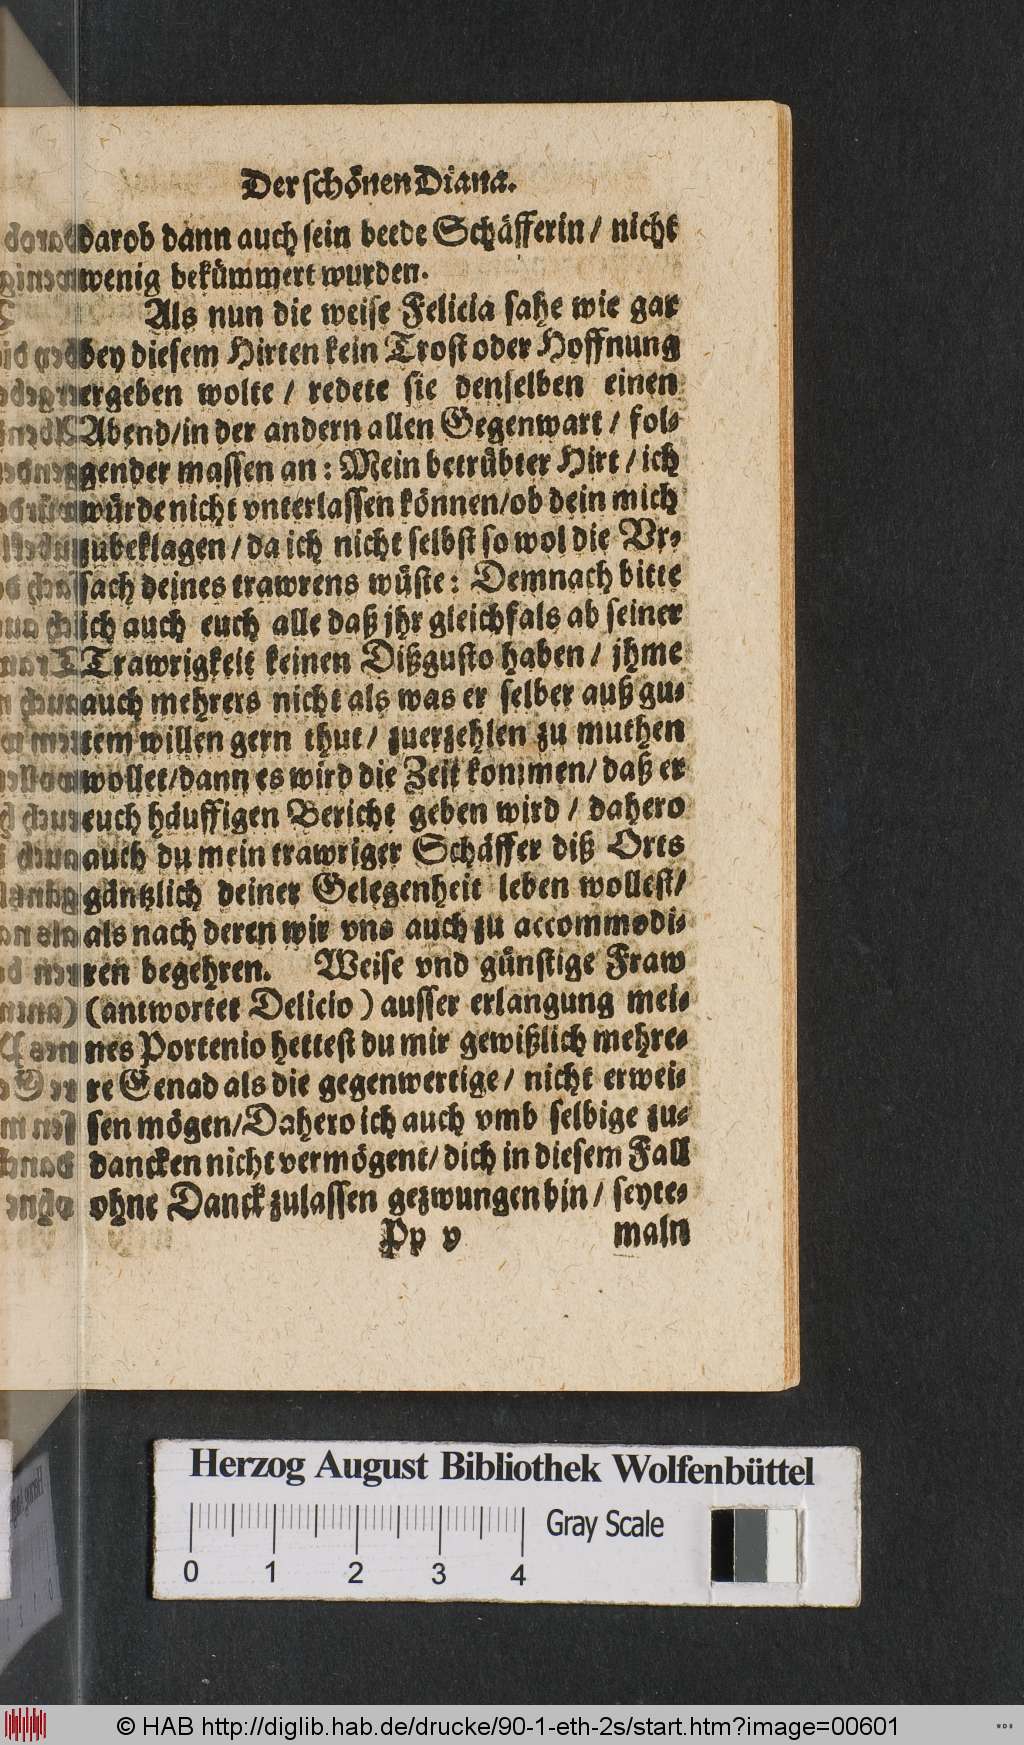 Der schönen Diana.
darob dann auch sein beede Schäfferin / nicht
wenig bekümmert wurden.
Als nun die weise Felicia sahe wie gar
bey diesem Hirten kein Trost oder Hoffnung
ergeben wolte / redete sie denselben einen
Abend/in der andern allen Gegenwart / fol-
gender massen an: Mein betrübter Hirt / ich
würde nicht vnterlassen können/ob dein mich
zubeklagen / da ich nicht selbst so wol die Vr-
sach deines trawrens wüste: Demnach bitte
ich auch euch alle daß jhr gleichfals ab seiner
Trawrigkeit keinen Dißgusto haben / jhme
auch mehrers nicht als was er selber auß gu-
tem willen gern thut / zuerzehlen zu muthen
wollet/dann es wird die Zeit kommen/ daß er
euch häuffigen Bericht geben wird / dahero
auch du mein trawriger Schäffer diß Orts
gäntzlich deiner Gelegenheit leben wollest/
als nach deren wir vns auch zu accommodi-
ren begehren. Weise vnd günstige Fraw
(antwortet Delicio) ausser erlangung mei-
nes Portenio hettest du mir gewißlich mehre-
re Genad als die gegenwertige / nicht erwei-
sen mögen/Dahero ich auch vmb selbige zu-
dancken nicht vermögent/ dich in diesem Fall
ohne Danck zulassen gezwungen bin / seyte-
Pp v maln
Herzog August Bibliothek Wolfenbüttel
0 1 2 3 4 Gray Scale
© HAB http://diglib.hab.de/drucke/90-1-eth-2s/start.htm?image=00601